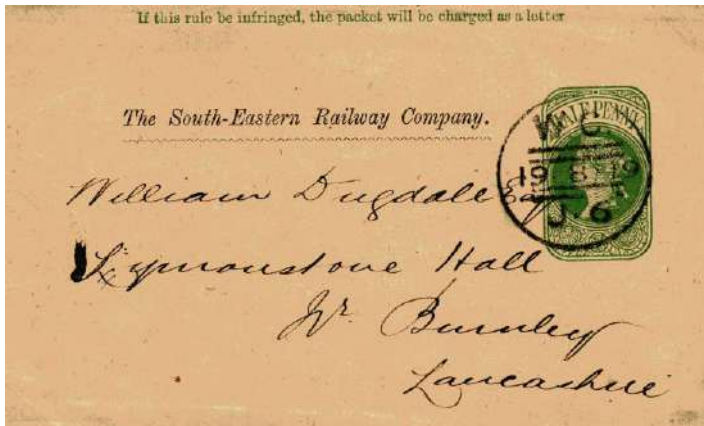 If this rule be infringed, the packet will be charged as a letter
HALFPENNY
The South-Eastern Railway Company.
W C
19 8 19
J 6
William Dugdale Esq
Symonstone Hall
Nr. Burnley
Lancashire